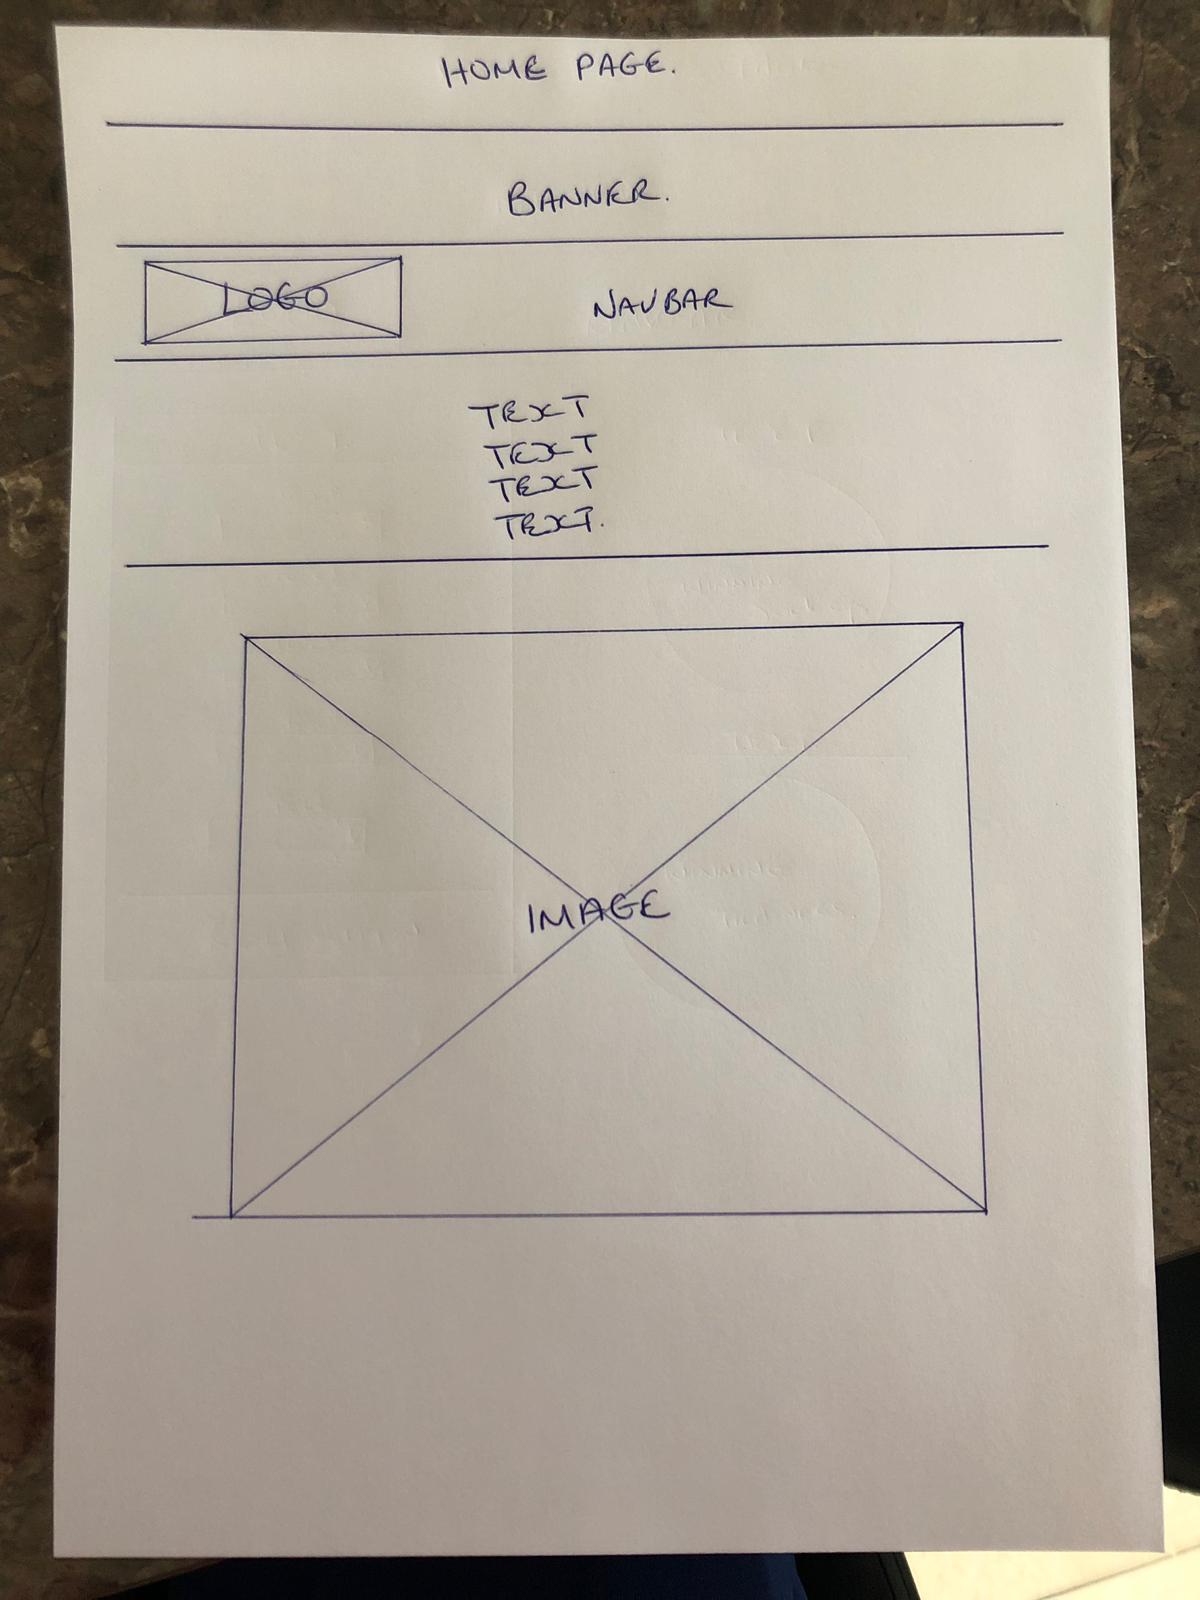 HOME PAGE.
BANNER.
LOGO
NAVBAR
TEXT
TEXT
TEXT
TEXT.
IMAGE